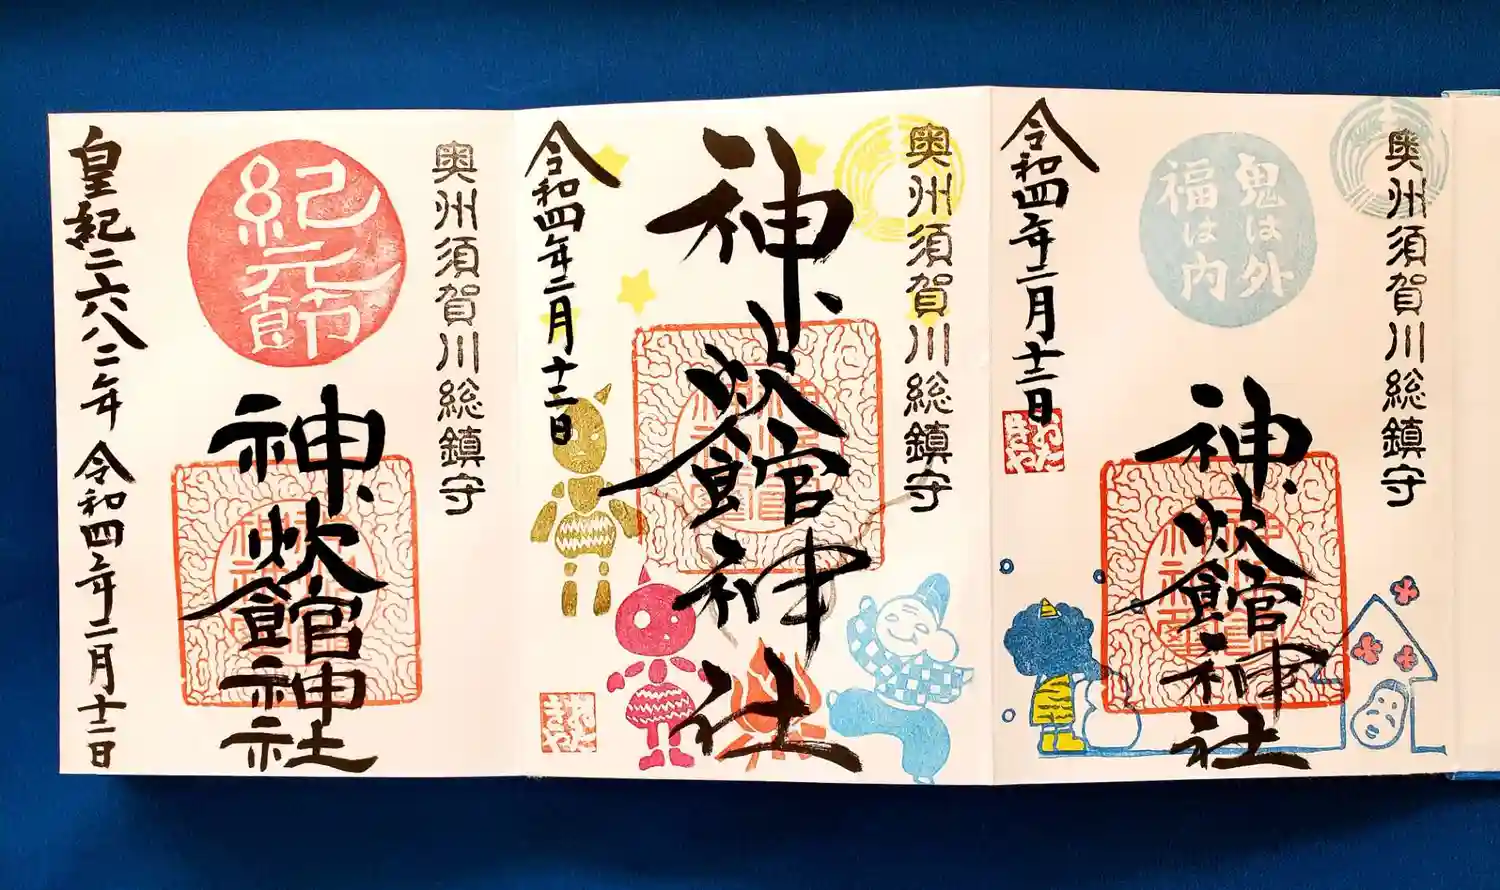 奥州須賀川総鎮守
鬼は外
福は内
神炊館神社
令和四年二月十二日
おた
きや
奥州須賀川総鎮守
神炊館神社
令和四年二月十二日
おた
きや
奥州須賀川総鎮守
紀元節
神炊館神社
皇紀二六八二年 令和四年二月十二日